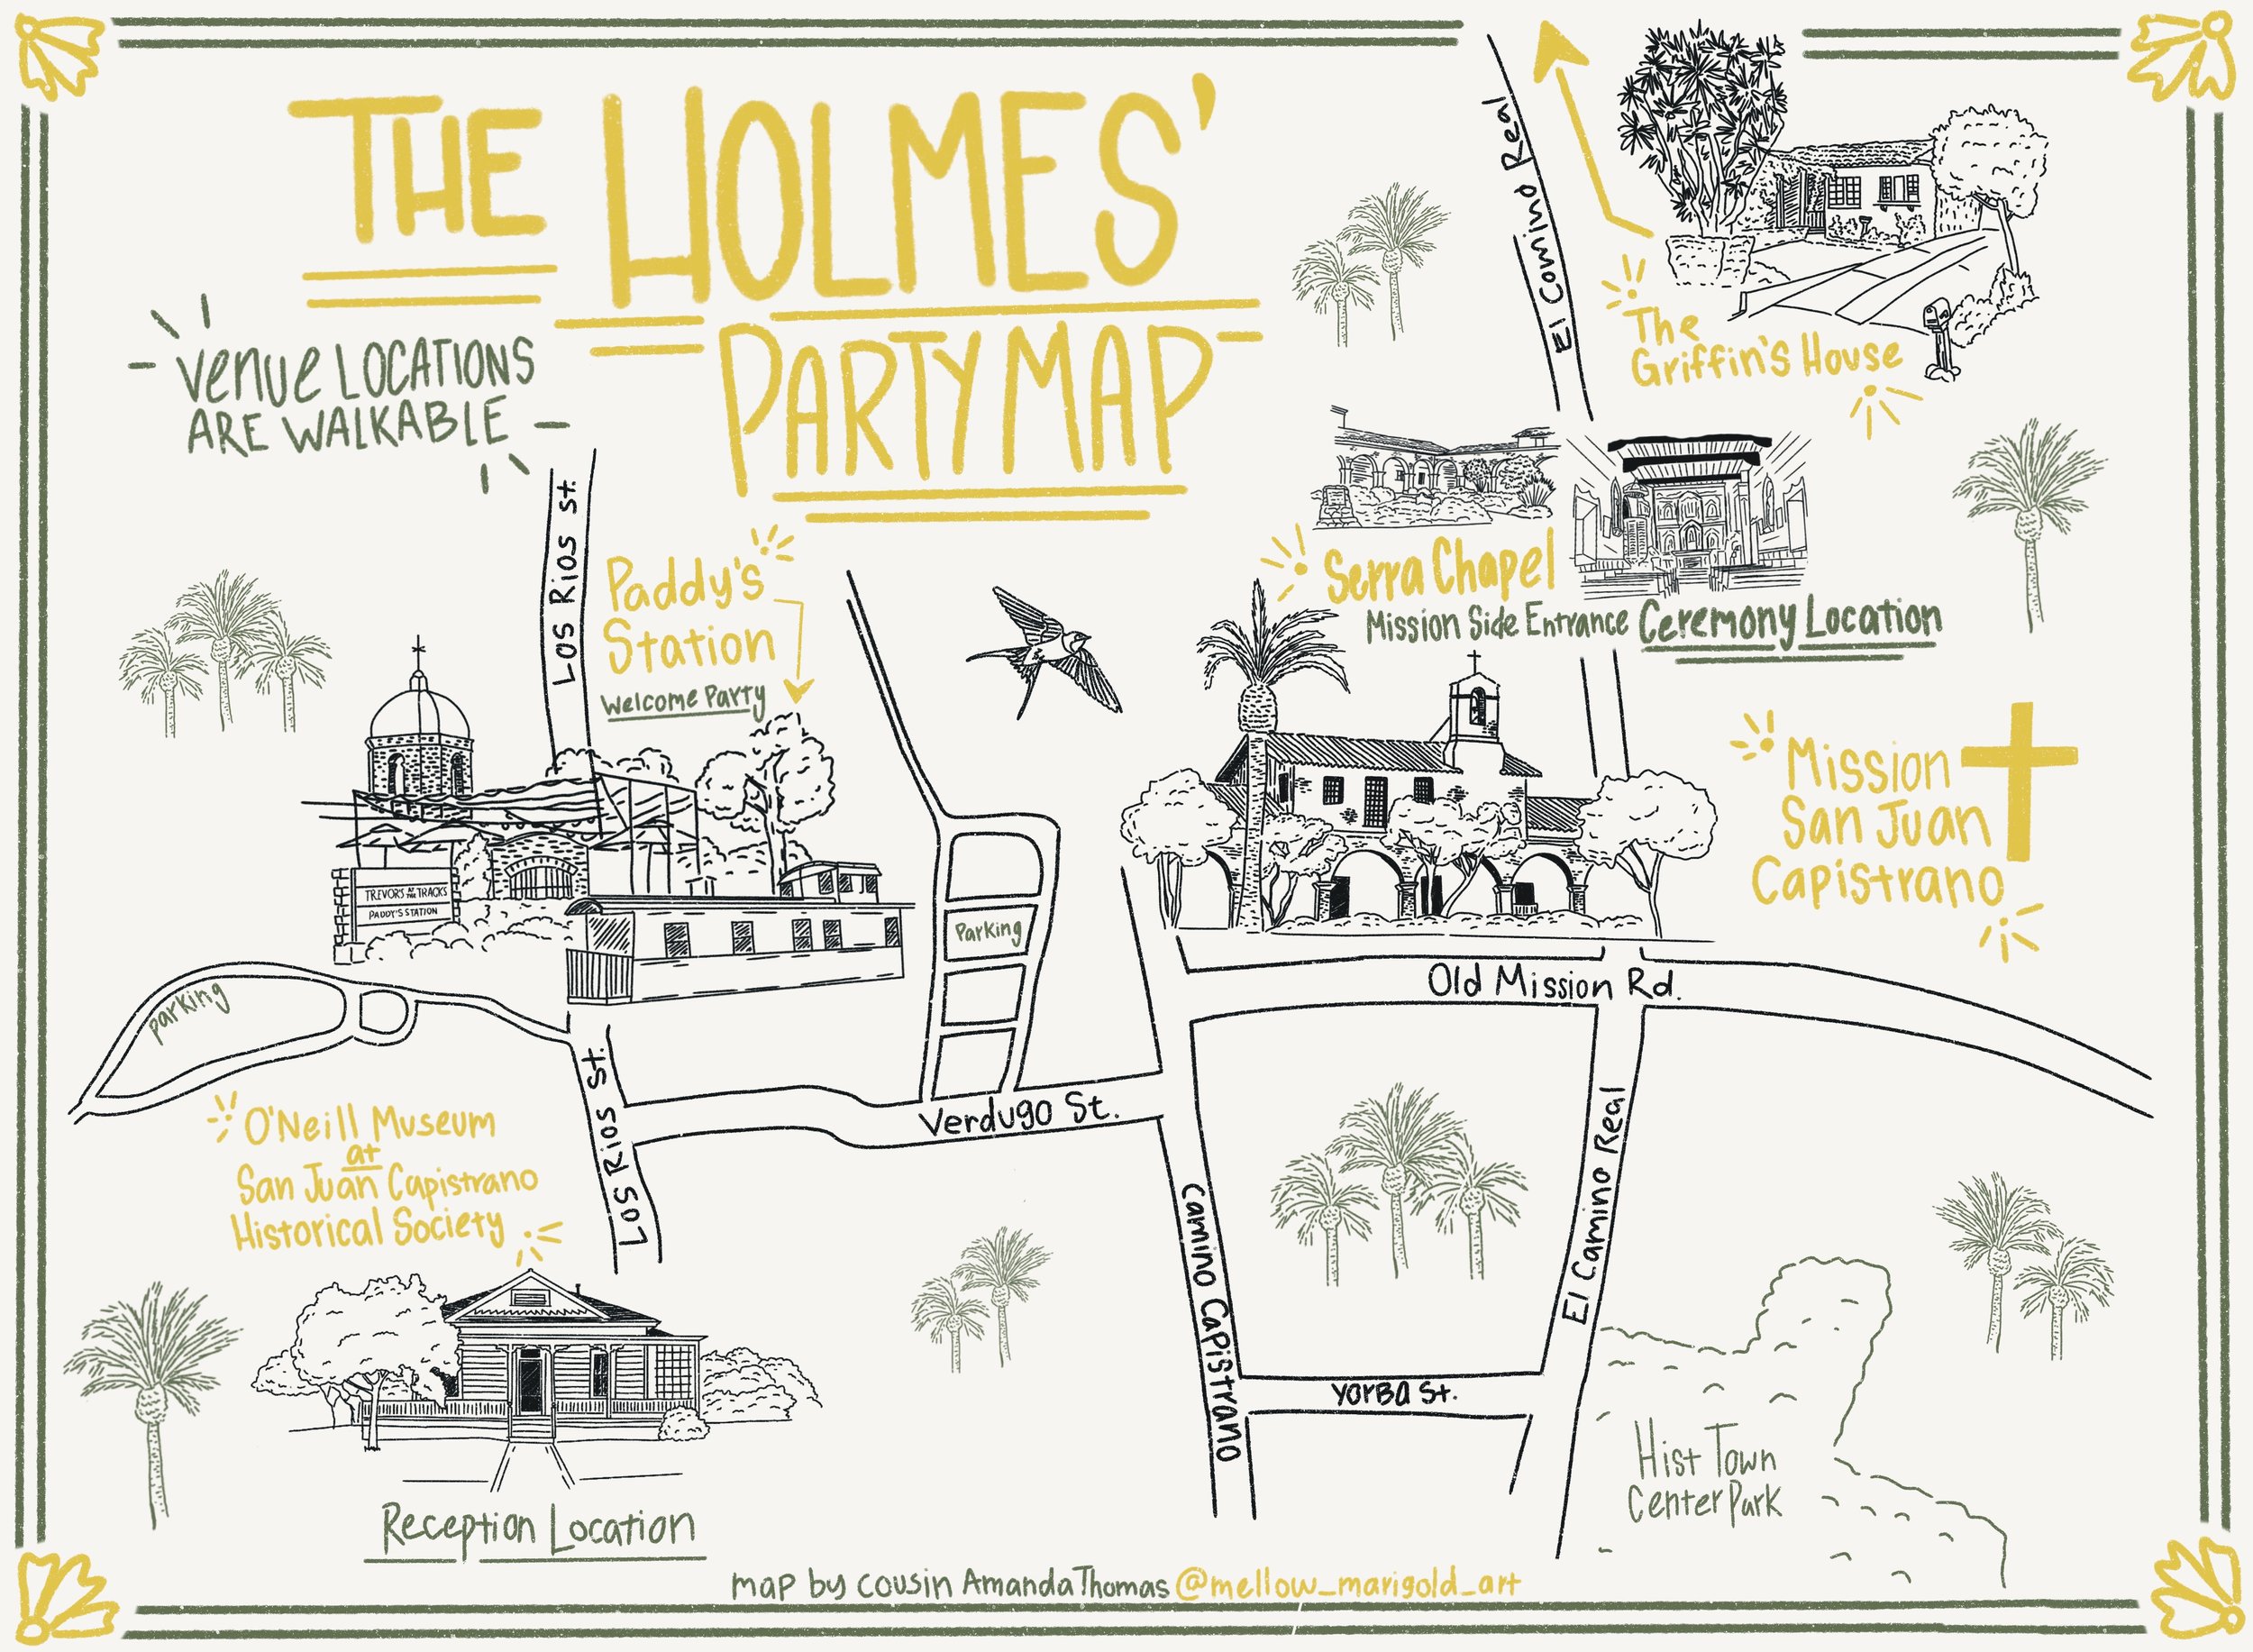 THE HOLMES'
PARTY MAP
Venue LOCATIONS
ARE WALKABLE
El Camino Real
The
Griffin's House
Los Rios St.
Paddy's
Station
Welcome Party
Serra Chapel
Mission Side Entrance Ceremony Location
Mission
San Juan
Capistrano
TREVOR'S AT THE TRACKS
PADDY'S STATION
Parking
parking
Old Mission Rd.
Los Rios St.
Verdugo St.
O'Neill Museum
at
San Juan Capistrano
Historical Society
Camino Capistrano
El Camino Real
Yorba St.
Hist Town
Center Park
Reception Location
map by cousin Amanda Thomas @mellow_marigold_art